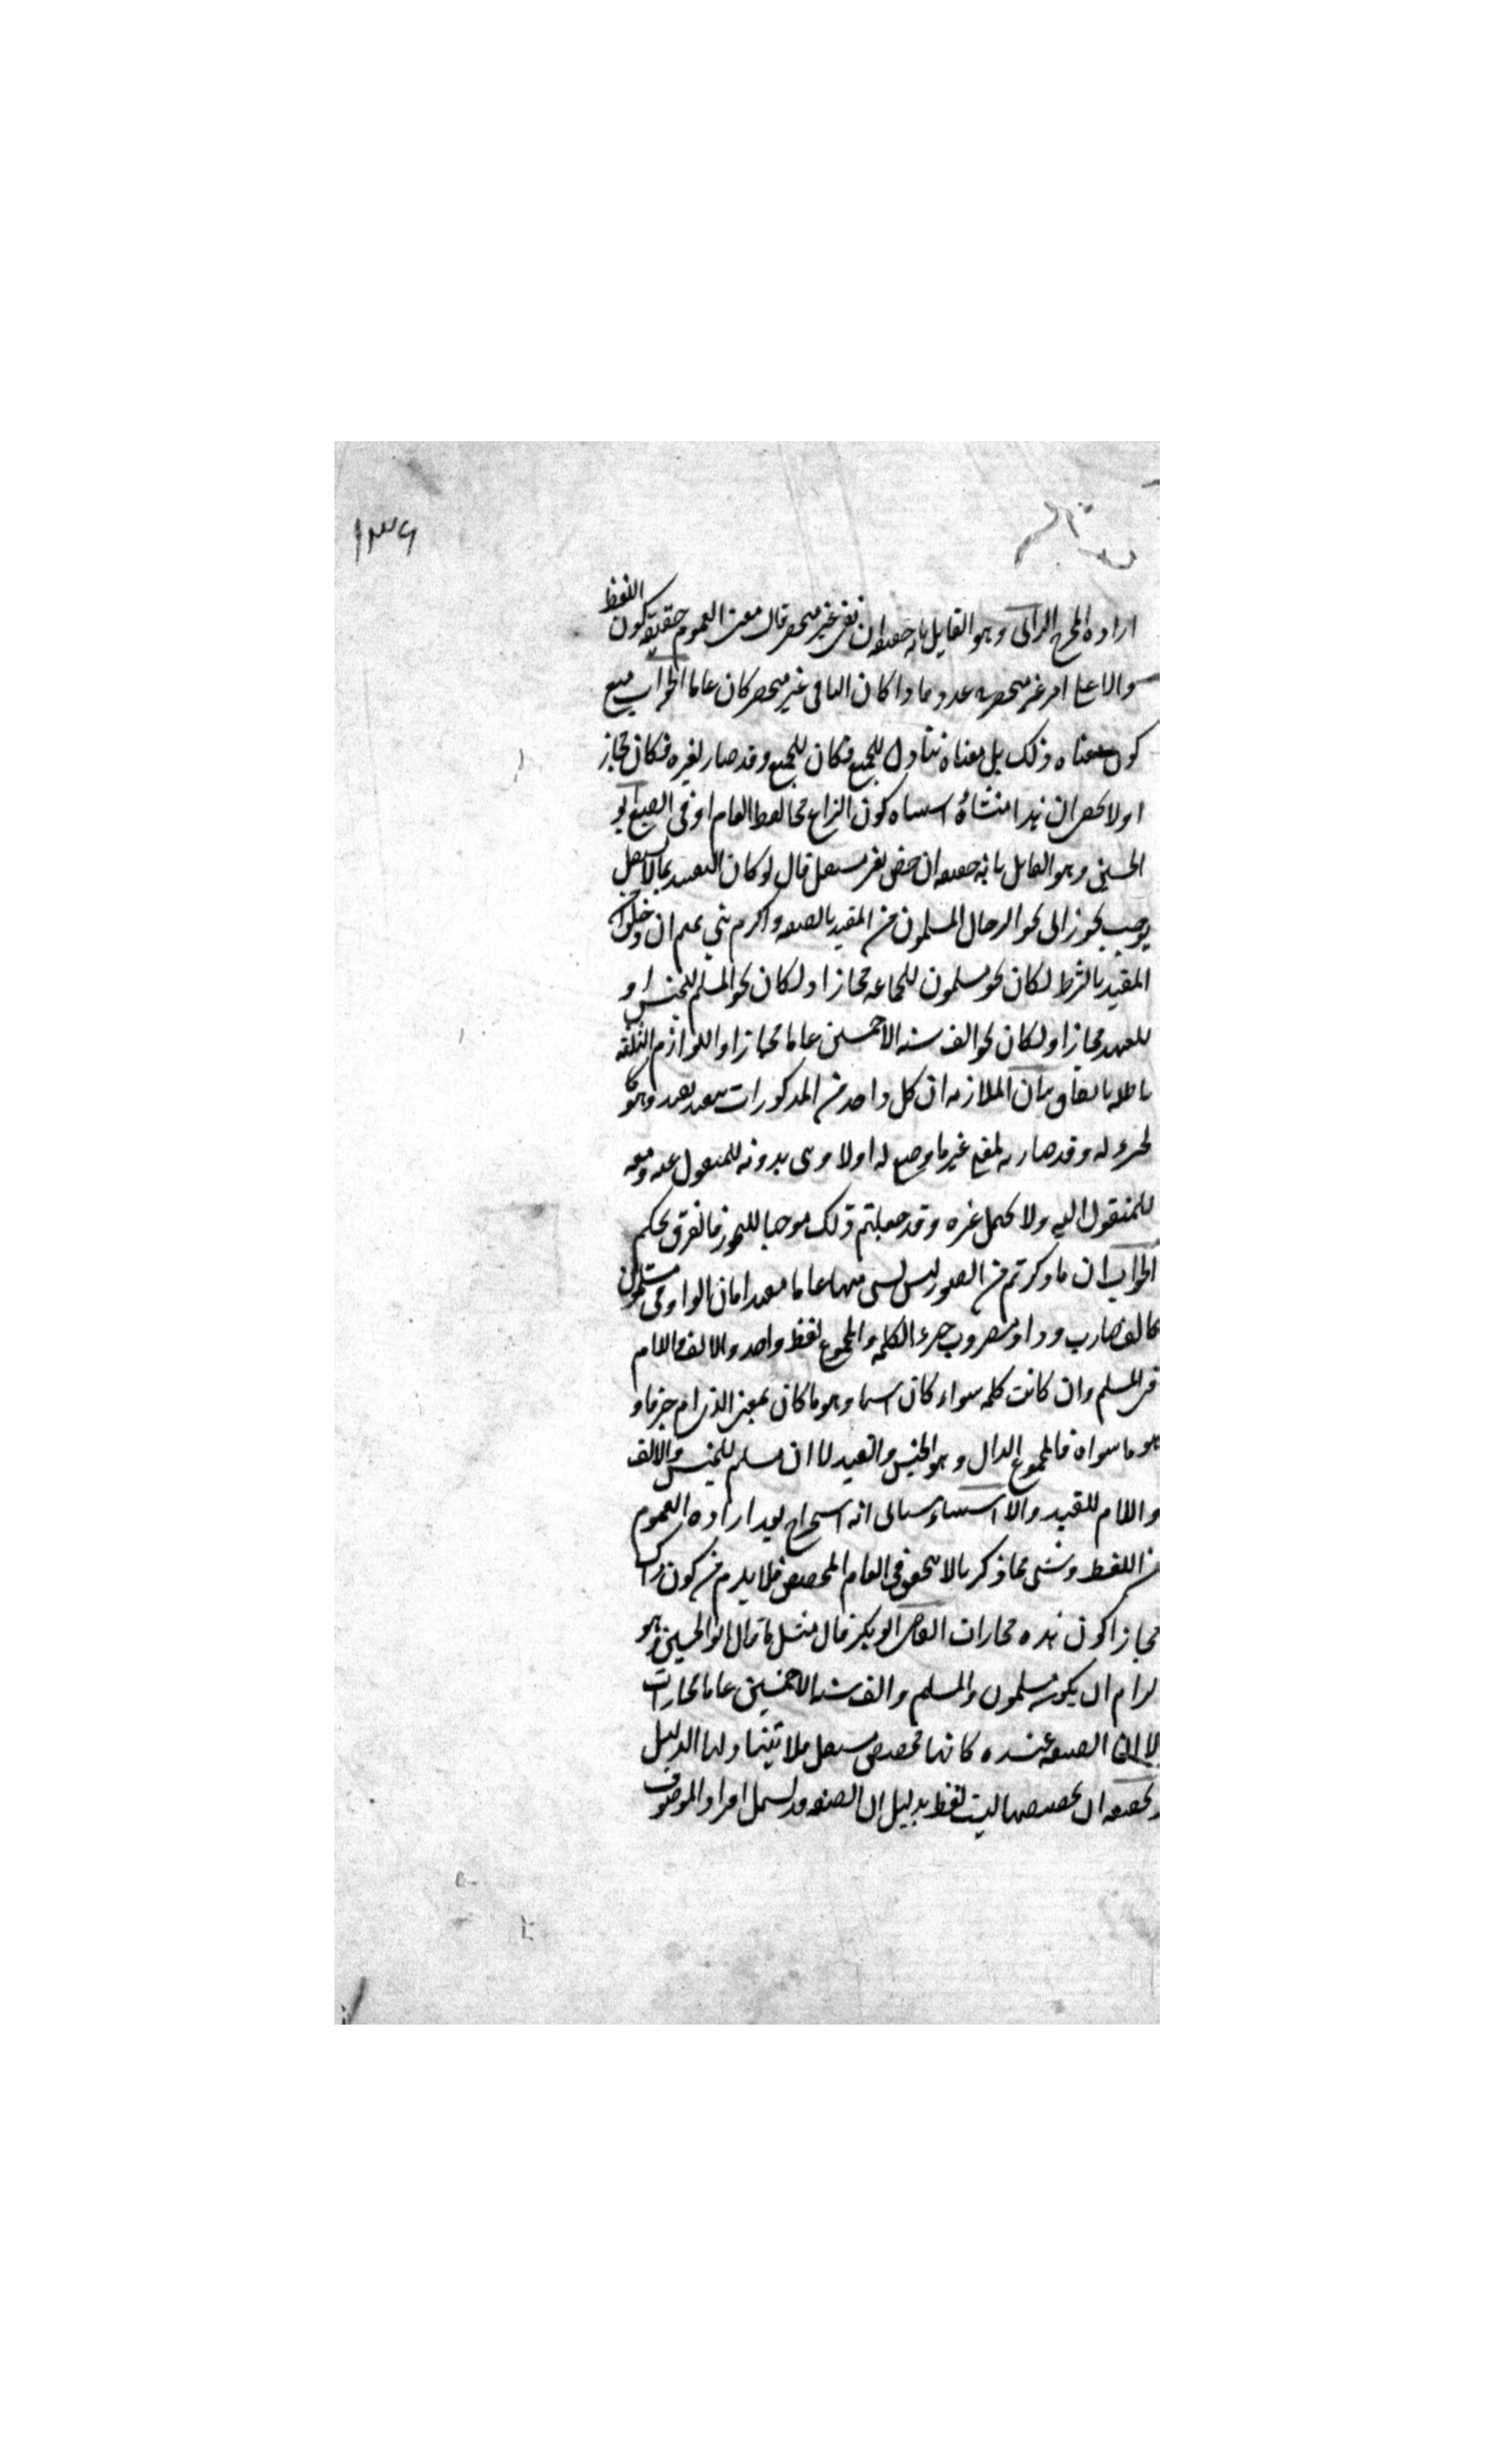 ١٣٩
ارادة المخرج الرازى وهو القايل بانه حقيقه ان بقى غير منحصر قال معنى العموم حقيقة كون اللفظ
دالا على امر غير منحصر فى عدد واذا كان الباقى غير منحصر كان عاما الجواب منع
كون معناه ذلك بل معناه تناول للجميع وكان للجميع وقد صار لغيره فكان مجاز
اولا يخفى ان هذا منشاؤه اشتباه كون النزاع فى لفظ العام او فى الصيغ ابو
الحسين وهو القايل بانه حقيقه ان خص بغير مستقل قال لو كان التقييد بما لا يستقل
يوجب تجوزا فى نحو الرجال المسلمون من المقيد بالصفه واكرم بنى تميم ان دخلوا من
المقيد بالشرط لكان نحو مسلمون للجماعه مجازا ولكان نحو المسلم للجنس او
للعهد مجازا ولكان نحو الف سنه الا خمسين عاما مجازا واللوازم الثلثه
باطله باتفاق بيان الملازمه ان كل واحد من المذكورات مقيد بقيد وهو كا
لجزء له وقد صار به لمعنى غير ما وضع له اولا وهى بدونه للمنقول عنه ومعه
للمنقول اليه ولا يحتمل غيره وقد جعلتم ذلك موجبا للتجوز فالفرق تحكم
الجواب ان ما ذكرتم من الصور ليس شى منها عاما مقيدا فان الواو فى مسلمون
كالف ضارب وواو مضروب جزء الكلمه والمجموع لفظ واحد والالف واللام
فى المسلم وان كانت كلمه سواء كان اسما وهو ما كان بمعنى الذى ام حرفا و
هو ما سواه فالمجموع الدال وهو الجنس والقيد لا ان مسلم للجنس والالف
واللام للقيد والاستثناء سياتى انه اخراج بعد ارادة العموم
من اللفظ وشى مما ذكر بالا يتحقق فى العام المخصص فلا يلزم من كون ذلك
مجازا كون هذه مجازات القاضى ابو بكر قال مثل ما قال ابو الحسين وهو
لزام ان يكون مسلمون والمسلم والف سنه الا خمسين عاما مجازات
الا ان الصفه عنده كانها مخصص مستقل فلا يثبتها ولها الدليل
وتحقيقه ان تخصيصها ليست لفظ بدليل ان الصفه قد تشمل افراد الموصوف